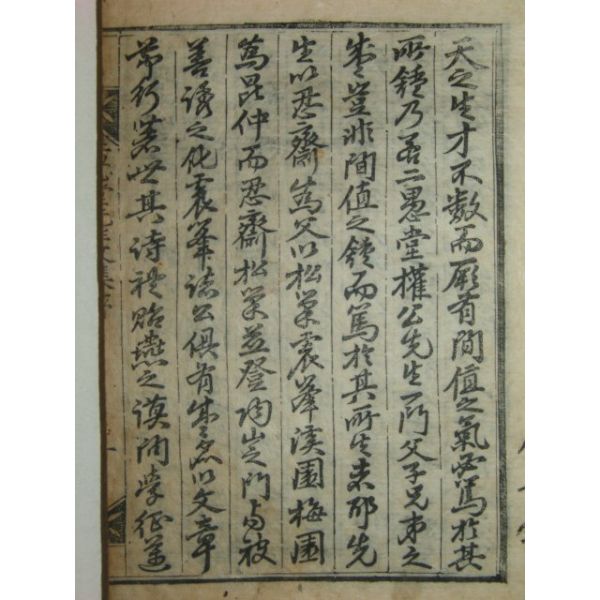 天之生才不數而厥有間值之氣必篤於其
所鍾乃若二愚堂權公先生一門父子兄弟之
盛豈非間值之鍾而篤於其所生来耶先
生以忍齋爲父以松巢震峯溪園梅園
爲昆仲而忍齋松巢並登陶山之門與被
善誘之化震峯諸公俱有盛名以文章
節行著世其詩禮貽燕之謨問學征邁